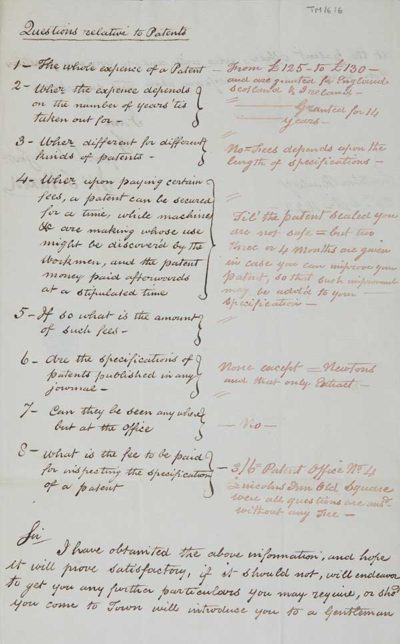 TM1616
Questions relative to Patents
1 - The whole expence of a Patent - From £125 - to £130 -
and are granted for England
Scotland & Ireland -
2 - Wher the expence depends
on the number of years 'tis
taken out for -
Granted for 14
years -
3 - Wher different for different
kinds of patents -
No = Fees depends upon the
length of specifications -
4 - Wher upon paying certain
fees, a patent can be secured
for a time, while machine
&c are making whose use
might be discover'd by the
Workmen, and the patent
money paid afterwards
at a stipulated time
Til' the patent sealed you
are not safe = but two
three or 4 Months are given
in case you can improve your
Patent, so that such improvemt
may be add'd to your
Specification -
5 - If so what is the amount
of such fees -
6 - Are the specifications of
patents published in any
journal -
None except = Newtons
and that only Extract -
7 - Can they be seen any where
but at the office
- No -
8 - what is the fee to be paid
for inspecting the specification
of a patent
- 3/6 Patent Office No. 4
Lincolns Inn Old Square
were all questions are ansd
without any Fee -
Sir
I have obtained the above information, and hope
it will prove satisfactory, if it should not, will endeavor
to get you any further particulars you may require, or shd
you come to Town will introduce you to a Gentleman